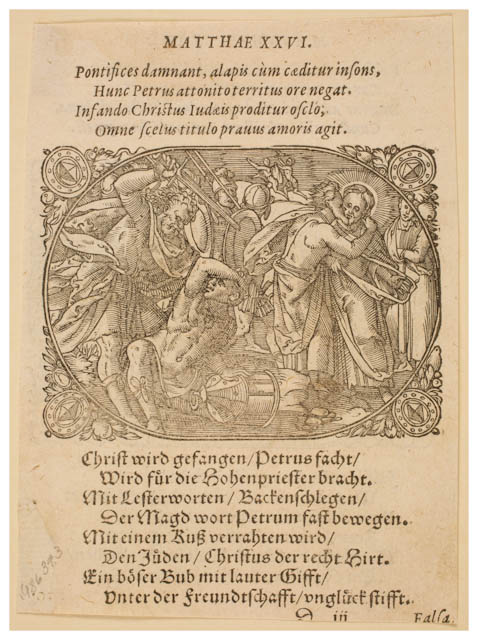 MATTHAE XXVI.
Pontifices damnant, alapis cùm cæditur insons,
Hunc Petrus attonito territus ore negat.
Infando Christus Iudæis proditur osclo;
Omne scelus titulo prauus amoris agit.
Christ wird gefangen/Petrus facht/
Wird für die Hohenpriester bracht.
Mit Lesterworten/Backenschlegen/
Der Magd wort Petrum fast bewegen.
Mit einem Kuß verrahten wird/
Den Jüden/Christus der recht Hirt.
Ein böser Bub mit lauter Gifft/
Vnter der Freundtschafft/vnglück stifft.
D iii
Falsa